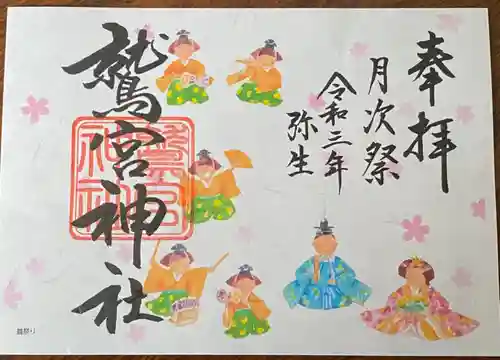 奉拝
月次祭
令和三年
弥生
鷲宮神社
鷲宮神社
雛祭り